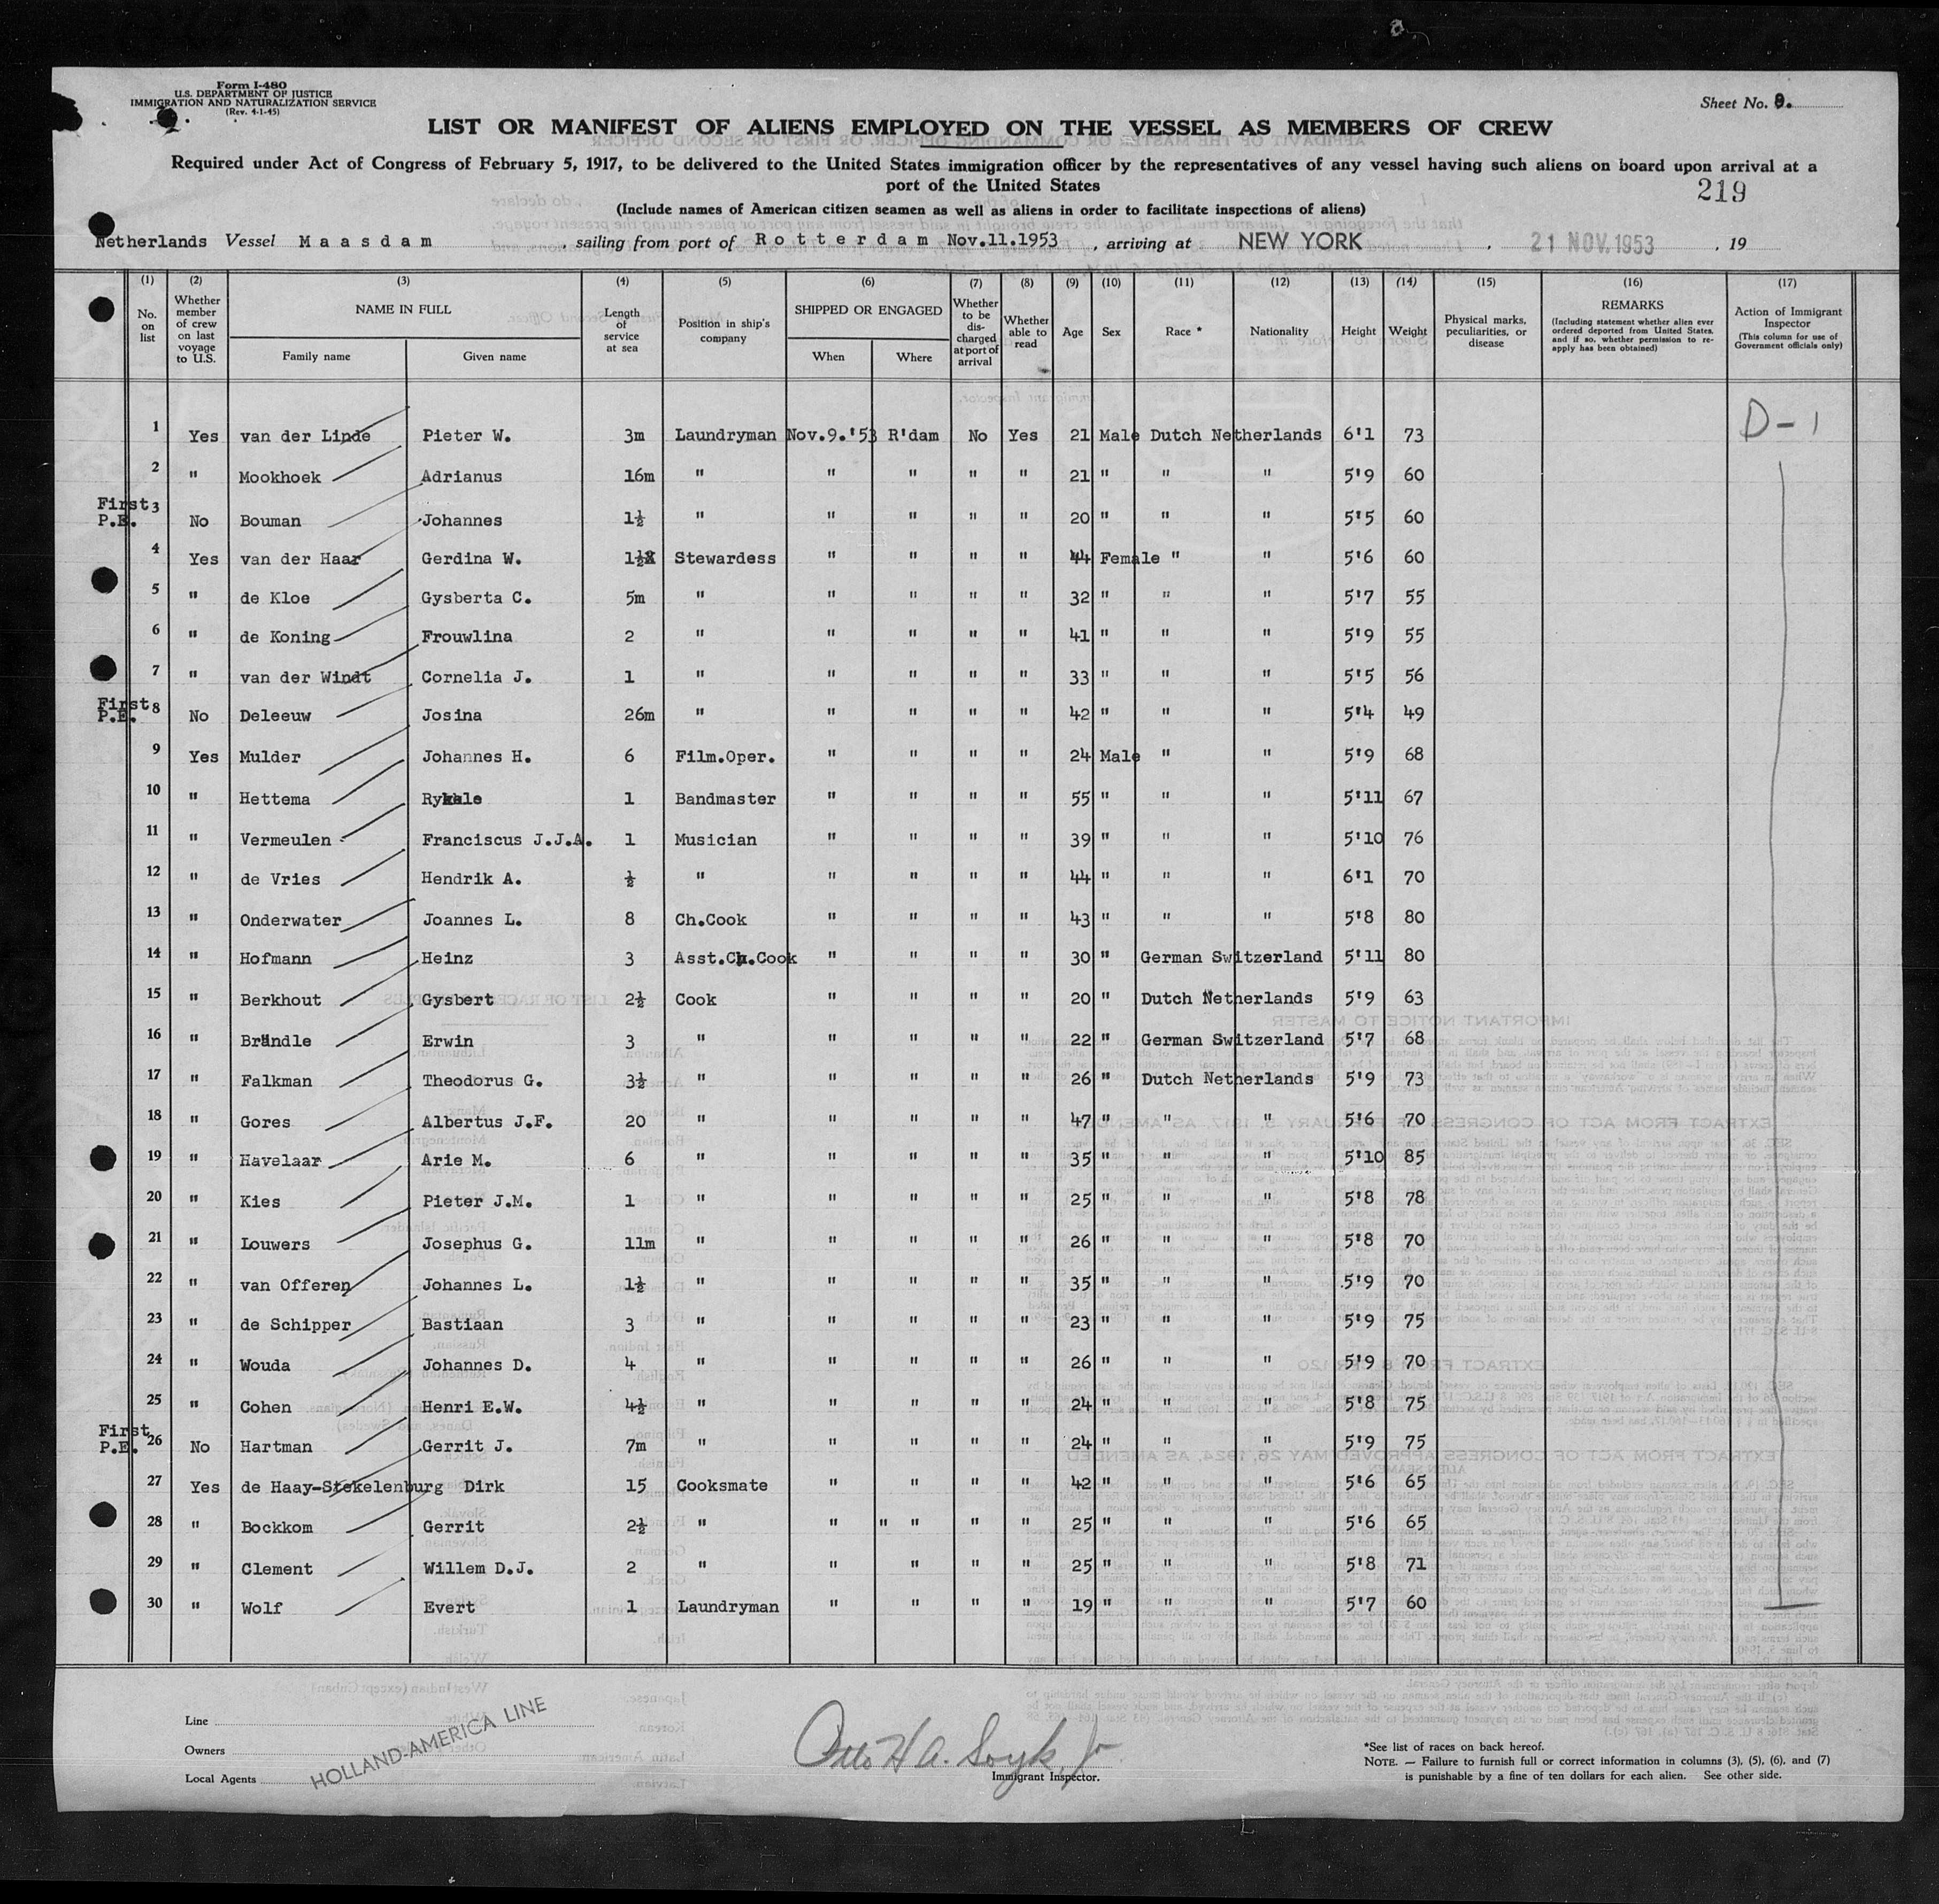 Form I-480
U.S. DEPARTMENT OF JUSTICE
IMMIGRATION AND NATURALIZATION SERVICE
(Rev. 4-1-45)
Sheet No. 9.
LIST OR MANIFEST OF ALIENS EMPLOYED ON THE VESSEL AS MEMBERS OF CREW
Required under Act of Congress of February 5, 1917, to be delivered to the United States immigration officer by the representatives of any vessel having such aliens on board upon arrival at a
port of the United States
219
(Include names of American citizen seamen as well as aliens in order to facilitate inspections of aliens)
Netherlands Vessel Maasdam, sailing from port of Rotterdam Nov.11.1953, arriving at NEW YORK, 21 NOV. 1953, 19
(1) (2) (3) (4) (5) (6) (7) (8) (9) (10) (11) (12) (13) (14) (15) (16) (17)
No. on list
Whether member of crew on last voyage to U.S.
NAME IN FULL
Family name
Given name
Length of service at sea
Position in ship's company
SHIPPED OR ENGAGED
When
Where
Whether to be discharged at port of arrival
Whether able to read
Age
Sex
Race *
Nationality
Height
Weight
Physical marks, peculiarities, or disease
REMARKS
(Including statement whether alien ever ordered deported from United States, and if so, whether permission to re-apply has been obtained)
Action of Immigrant Inspector
(This column for use of Government officials only)
D-1
1 Yes van der Linde Pieter W. 3m Laundryman Nov.9.'53 R'dam No Yes 21 Male Dutch Netherlands 6'1 73
2 " Mookhoek Adrianus 16m " " " " " 21 " " " 5'9 60
First P.E. 3 No Bouman Johannes 1½ " " " " " 20 " " " 5'5 60
4 Yes van der Haar Gerdina W. 1½ Stewardess " " " " 44 Female " " 5'6 60
5 " de Kloe Gysberta C. 5m " " " " " 32 " " " 5'7 55
6 " de Koning Frouwlina 2 " " " " " 41 " " " 5'9 55
7 " van der Windt Cornelia J. 1 " " " " " 33 " " " 5'5 56
First P.E. 8 No Deleeuw Josina 26m " " " " " 42 " " " 5'4 49
9 Yes Mulder Johannes H. 6 Film.Oper. " " " " 24 Male " " 5'9 68
10 " Hettema 1 Bandmaster " " " " 55 " " " 5'11 67
11 " Vermeulen Franciscus J.J.A. 1 Musician " " " " 39 " " " 5'10 76
12 " de Vries Hendrik A. ½ " " " " " 44 " " " 6'1 70
13 " Onderwater Joannes L. 8 Ch.Cook " " " " 43 " " " 5'8 80
14 " Hofmann Heinz 3 Asst.Ch.Cook " " " " 30 " German Switzerland 5'11 80
15 " Berkhout Gysbert 2½ Cook " " " " 20 " Dutch Netherlands 5'9 63
16 " Brändle Erwin 3 " " " " " 22 " German Switzerland 5'7 68
17 " Falkman Theodorus G. 3½ " " " " " 26 " Dutch Netherlands 5'9 73
18 " Gores Albertus J.F. 20 " " " " " 47 " " " 5'6 70
19 " Havelaar Arie M. 6 " " " " " 35 " " " 5'10 85
20 " Kies Pieter J.M. 1 " " " " " 25 " " " 5'8 78
21 " Louwers Josephus G. 11m " " " " " 26 " " " 5'8 70
22 " van Offeren Johannes L. 1½ " " " " " 35 " " " 5'9 70
23 " de Schipper Bastiaan 3 " " " " " 23 " " " 5'9 75
24 " Wouda Johannes D. 4 " " " " " 26 " " " 5'9 70
25 " Cohen Henri E.W. 4½ " " " " " 24 " " " 5'8 75
First P.E. 26 No Hartman Gerrit J. 7m " " " " " 24 " " " 5'9 75
27 Yes de Haay-Stekelenburg Dirk 15 Cooksmate " " " " 42 " " " 5'6 65
28 " Bockkom Gerrit 2½ " " " " " " 25 " " " 5'6 65
29 " Clement Willem D.J. 2 " " " " " 25 " " " 5'8 71
30 " Wolf Evert 1 Laundryman " " " " 19 " " " 5'7 60
Line
Owners
Local Agents
HOLLAND-AMERICA LINE
Otto H A. Soyk, Jr
Immigrant Inspector.
*See list of races on back hereof.
NOTE. — Failure to furnish full or correct information in columns (3), (5), (6), and (7)
is punishable by a fine of ten dollars for each alien. See other side.